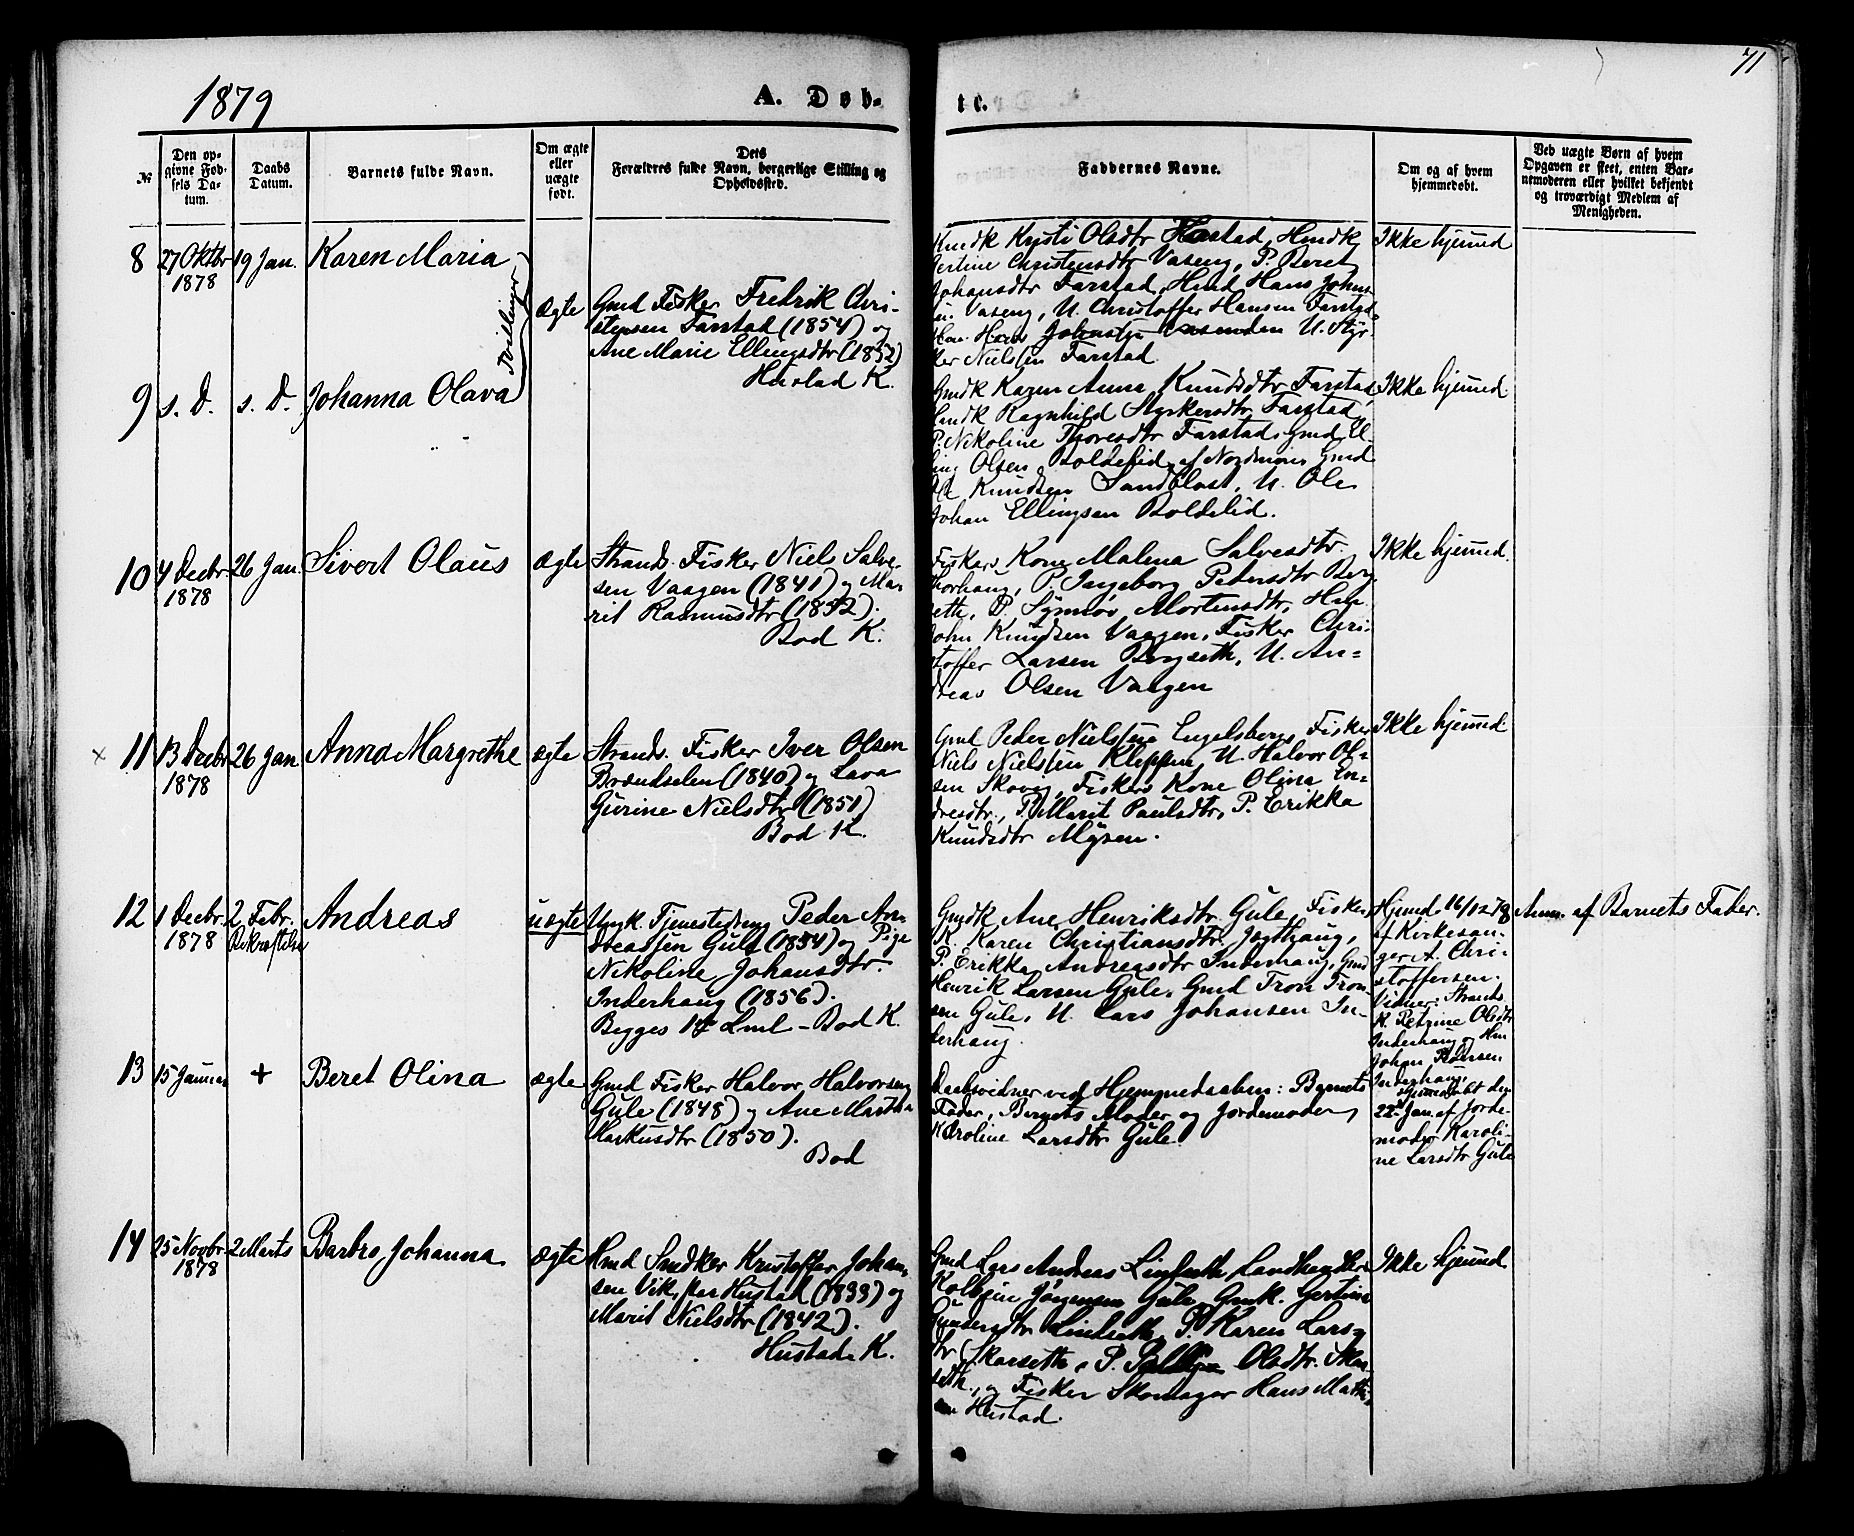 1879
A. Døb-
te.
71
№
Den op-
givne Fød-
sels Da-
tum.
Daabs
Datum.
Barnets fulde Navn.
Om ægte
eller
uægte
født.
Dets
Forældres fulde Navn, borgerlige Stilling og
Opholdssted.
Faddernes Navne.
Om og af hvem
hjemmedøbt.
Ved uægte Børn af hvem
Opgaven er skeet, enten Bar-
nemoderen eller hvilket bekjendt
og troværdigt Medlem af
Menigheden.
8
27 Oktbr
1878
19 Jan.
Karen Maria
Tvillinger
Ægte
Gmd Fisker Fredrik Chri-
stensen Farstad (1854) og
Ane Marie Ellingsdtr (1852)
Hustad K.
Hmdk Kristi Olsdtr Hostad, Hmdk
Gertine Christensdtr Vaseng, P. Beret
Johansdtr Farstad, Hmd Hans Johan-
Vaseng, U. Christoffer Hansen Farstad
U. Styr-
ker Nielsen Farstad.
Ikke hjemmd
9
s. D.
s. D.
Johanna Olava
Gmdk Karen Anna Knudsdtr Farstad
Hmdk Ragnhild Styrkersdtr Farstad,
P. Nikoline Thoresdtr Farstad, Gmd El-
ling Olsen Boldelid af Nordmøre, Gmd
Knudsen Sandblast, U. Ole
Johan Ellingsen Boldelid.
Ikke hjemmd.
10
4 Decbr
1878
26 Jan.
Sivert Olaus
Ægte
Strands. Fisker Niels Salve-
sen Vaagen (1841) og Ma-
rit Rasmusdtr (1852).
Bod K.
Fiskers Kone Malena Salvesdtr
Thorhaug, P. Ingeborg Pedersdtr Berg-
seth, P. Synnøv Mortensdtr, Hm
John Knudsen Vaagen, Fisker Chri-
stoffer Larsen Bergseth, U. An-
dreas Olsen Vaagen
Ikke hjemmd.
× 11
13 Decbr
1878
26 Jan
Anna Margrethe
ægte
Strands. Fisker Iver Olsen
Brændselen (1840) og Lava
Gurine Nielsdtr (1851)
Bod K.
Gmd Peder Nielsen Engelsberg, Fisker
Niels Nielsen Kleppen, U. Halvor Ol-
sen Skovig, Fiskers Kone Olina En-
dresdtr., P. Marit Paulsdtr, P. Erikka
Knudsdtr Mysen.
Ikke hjemmd.
12
1 Decbr
1878
2 Febr.
Bekræftelse
Andreas
uægte
Ungk. Tjenestedreng Peder An-
dreassen Gule (1854) og Pige
Nikoline Johansdtr.
Inderhaug (1856).
Begges 1ste Lml - Bod K.
Gmdk Ane Henriksdtr. Gule, Fisker
K. Karen Christiansdtr. Jogthaug,
P. Erikka Andreasdtr Inderhaug, Gmd
Henrik Larsen Gule, Gmd Tron Tron-
sen Gule, U. Lars Johansen In-
derhaug.
Hjemmd. 16/12 78
af Kirkesan-
ger A. Chri-
stoffersen.
Vidner: Strands
K. Petrine Olsdtr
Inderhaug og Hm
Johan Pedersen
Inderhaug.
Anm. af Barnets Fader.
13
15 Januar
+
Beret Olina
ægte
Gmd Fisker Halvor Halvorsen
Gule (1848) og Ane Martha
Markusdtr (1850).
Bod
Daabsvidner ved Hjemmedaaben: Barnets
Fader, Barnets Moder og Jordemoder
Karoline Larsdtr Gule.
Hjemmedøbt den
22d Jan. af Jorde-
moder Karoli-
ne Larsdtr Gule
14
25 Novbr
1878
2 Marts
Barbro Johanna
Ægte
Hmd Smdker Kristoffer Johan-
sen Vik, Hustad (1833) og
Marit Nielsdtr (1842).
Hustad K.
Gmd Lars Andreas Lindseth, Landhandler
Kolbjørn Jørgensen Gule, Gmdk. Gertine
Gundersdtr Lindseth, P. Karen Lars-
dtr Skarseth, P. Olsdtr. Skar-
seth, og Fisker Skomager Hans Math-
sen Hustad.
Ikke hjemmd